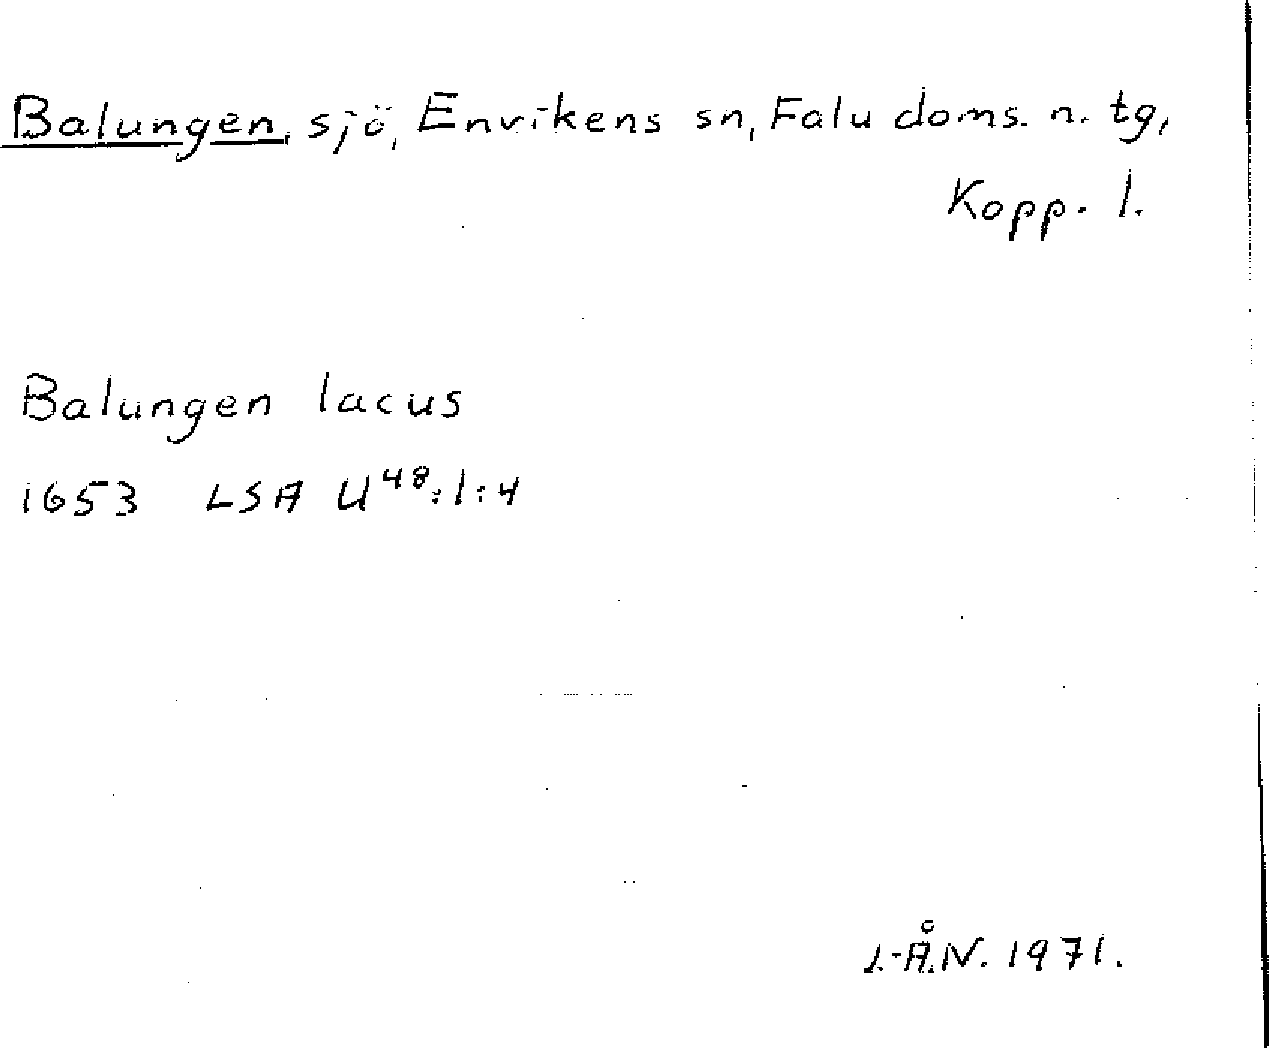 Balungen, sjö, Envikens sn, Falu doms. n. tg,
Kopp. l.
Balungen lacus
1653 LSA U⁴⁸:1:4
L-Å.N. 1971.